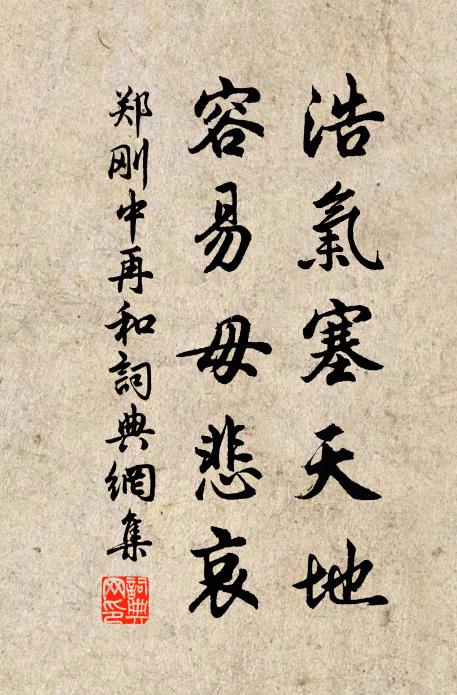 浩氣塞天地
容易毋悲哀
郑刚中再和詞典網集
詞典
网印